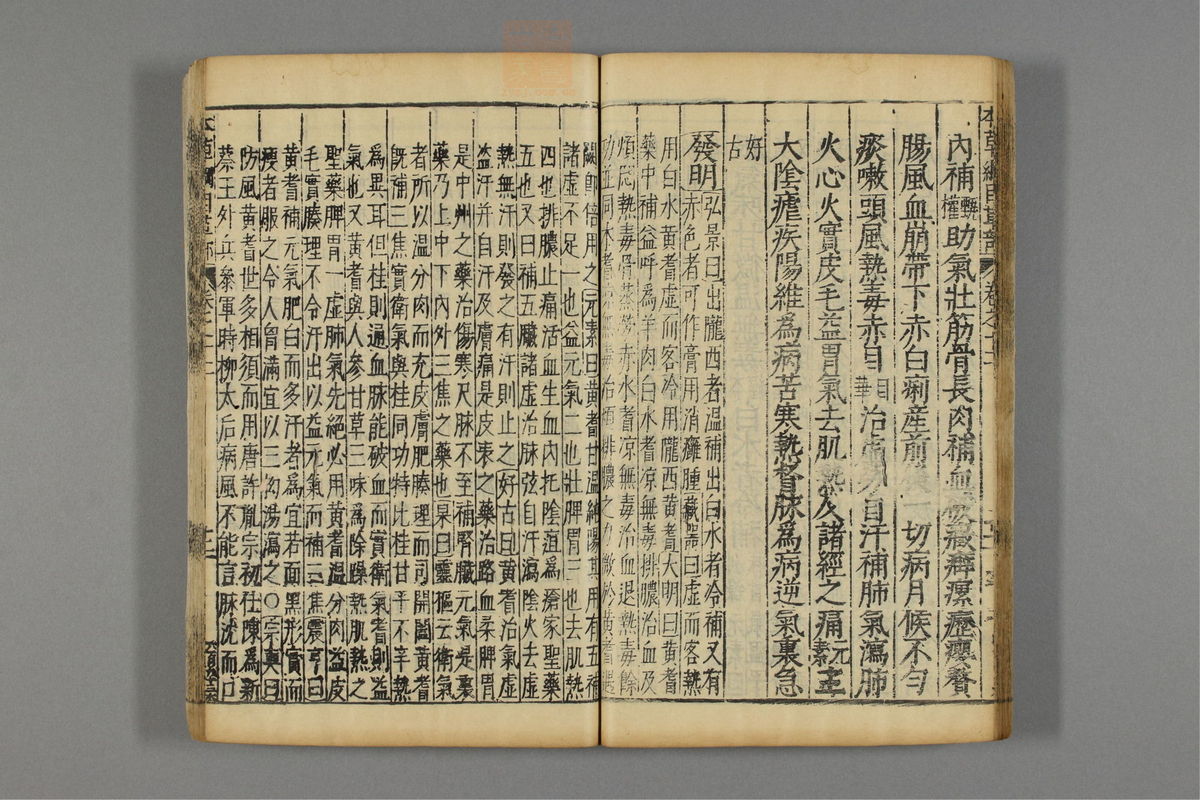 內補甄權助氣壯筋骨長肉補血破癥癖瘰癧癭贅
腸風血崩帶下赤白痢産前後一切病月候不勻
痰嗽頭風熱毒赤目日華治虛勞自汗補肺氣瀉肺
火心火實皮毛益胃氣去肌熱及諸經之痛元素主
大陰瘧疾陽維爲病苦寒熱督脉爲病逆氣裏急
好古
發明弘景曰出隴西者温補出白水者冷補又有
赤色者可作膏用消癰腫藏器曰虛而客熱
用白水黃耆虛而客冷用隴西黃耆大明曰黃耆
藥中補益呼爲羊肉白水耆涼無毒排膿治血及
煩悶熱毒骨蒸勞赤水耆涼無毒治血退熱毒餘
功並同木耆涼無毒治煩排膿之力微於黃耆遇
闕即倍用之元素曰黃耆甘温純陽其用有五補
諸虛不足一也益元氣二也壯脾胃三也去肌熱
四也排膿止痛活血生血內托陰疽爲瘡家聖藥
五也又曰補五臟諸虛治脉弦自汗瀉陰火去虛
熱無汗則發之有汗則止之好古曰黃耆治氣虛
盜汗并自汗及膚痛是皮表之藥治咯血柔脾胃
是中州之藥治傷寒尺脉不至補腎臟元氣是裏
藥乃上中下內外三焦之藥也杲曰靈樞云衛氣
者所以温分肉而充皮膚肥腠理而司開闔黃耆
既補三焦實衛氣與桂同功特比桂甘平不辛熱
爲異耳但桂則通血脉能破血而實衛氣耆則益
氣也又黃耆與人參甘草三味爲除躁熱肌熱之
聖藥脾胃一虛肺氣先絕必用黃耆温分肉益皮
毛實腠理不令汗出以益元氣而補三焦震亨曰
黃耆補元氣肥白而多汗者爲宜若面黑形實而
瘦者服之令人胷滿宜以三拗湯瀉之○宗奭曰
防風黃耆世多相須而用唐許胤宗初仕陳爲新
蔡王外兵參軍時柳太后病風不能言脉沈而口